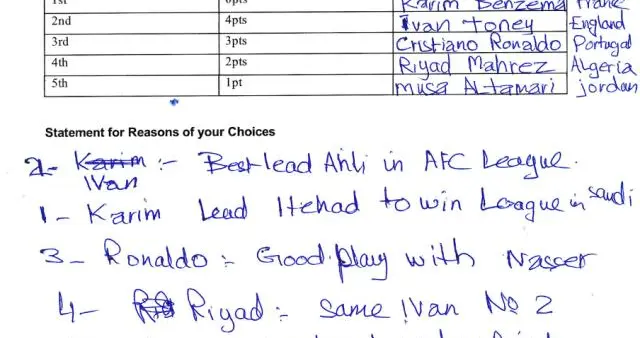 1st 6pts Karim Benzema France
2nd 4pts Ivan toney England
3rd 3pts Cristiano Ronaldo Portugal
4th 2pts Riyad Mahrez Algeria
5th 1pt musa AL-tamari jordan
Statement for Reasons of your Choices
2- Karim :- Best lead Ahli in AFC League.
Ivan
1- Karim Lead Itehad to win League in saudi
3- Ronaldo :- Good play with Nasser
4- Riyad :- same Ivan No 2